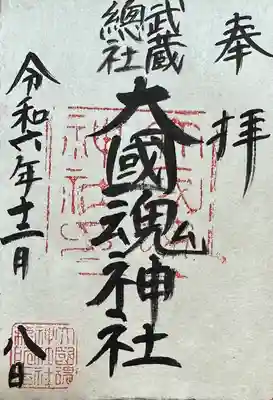 奉拝
武蔵
總社
大國魂神社
令和六年十二月
八日